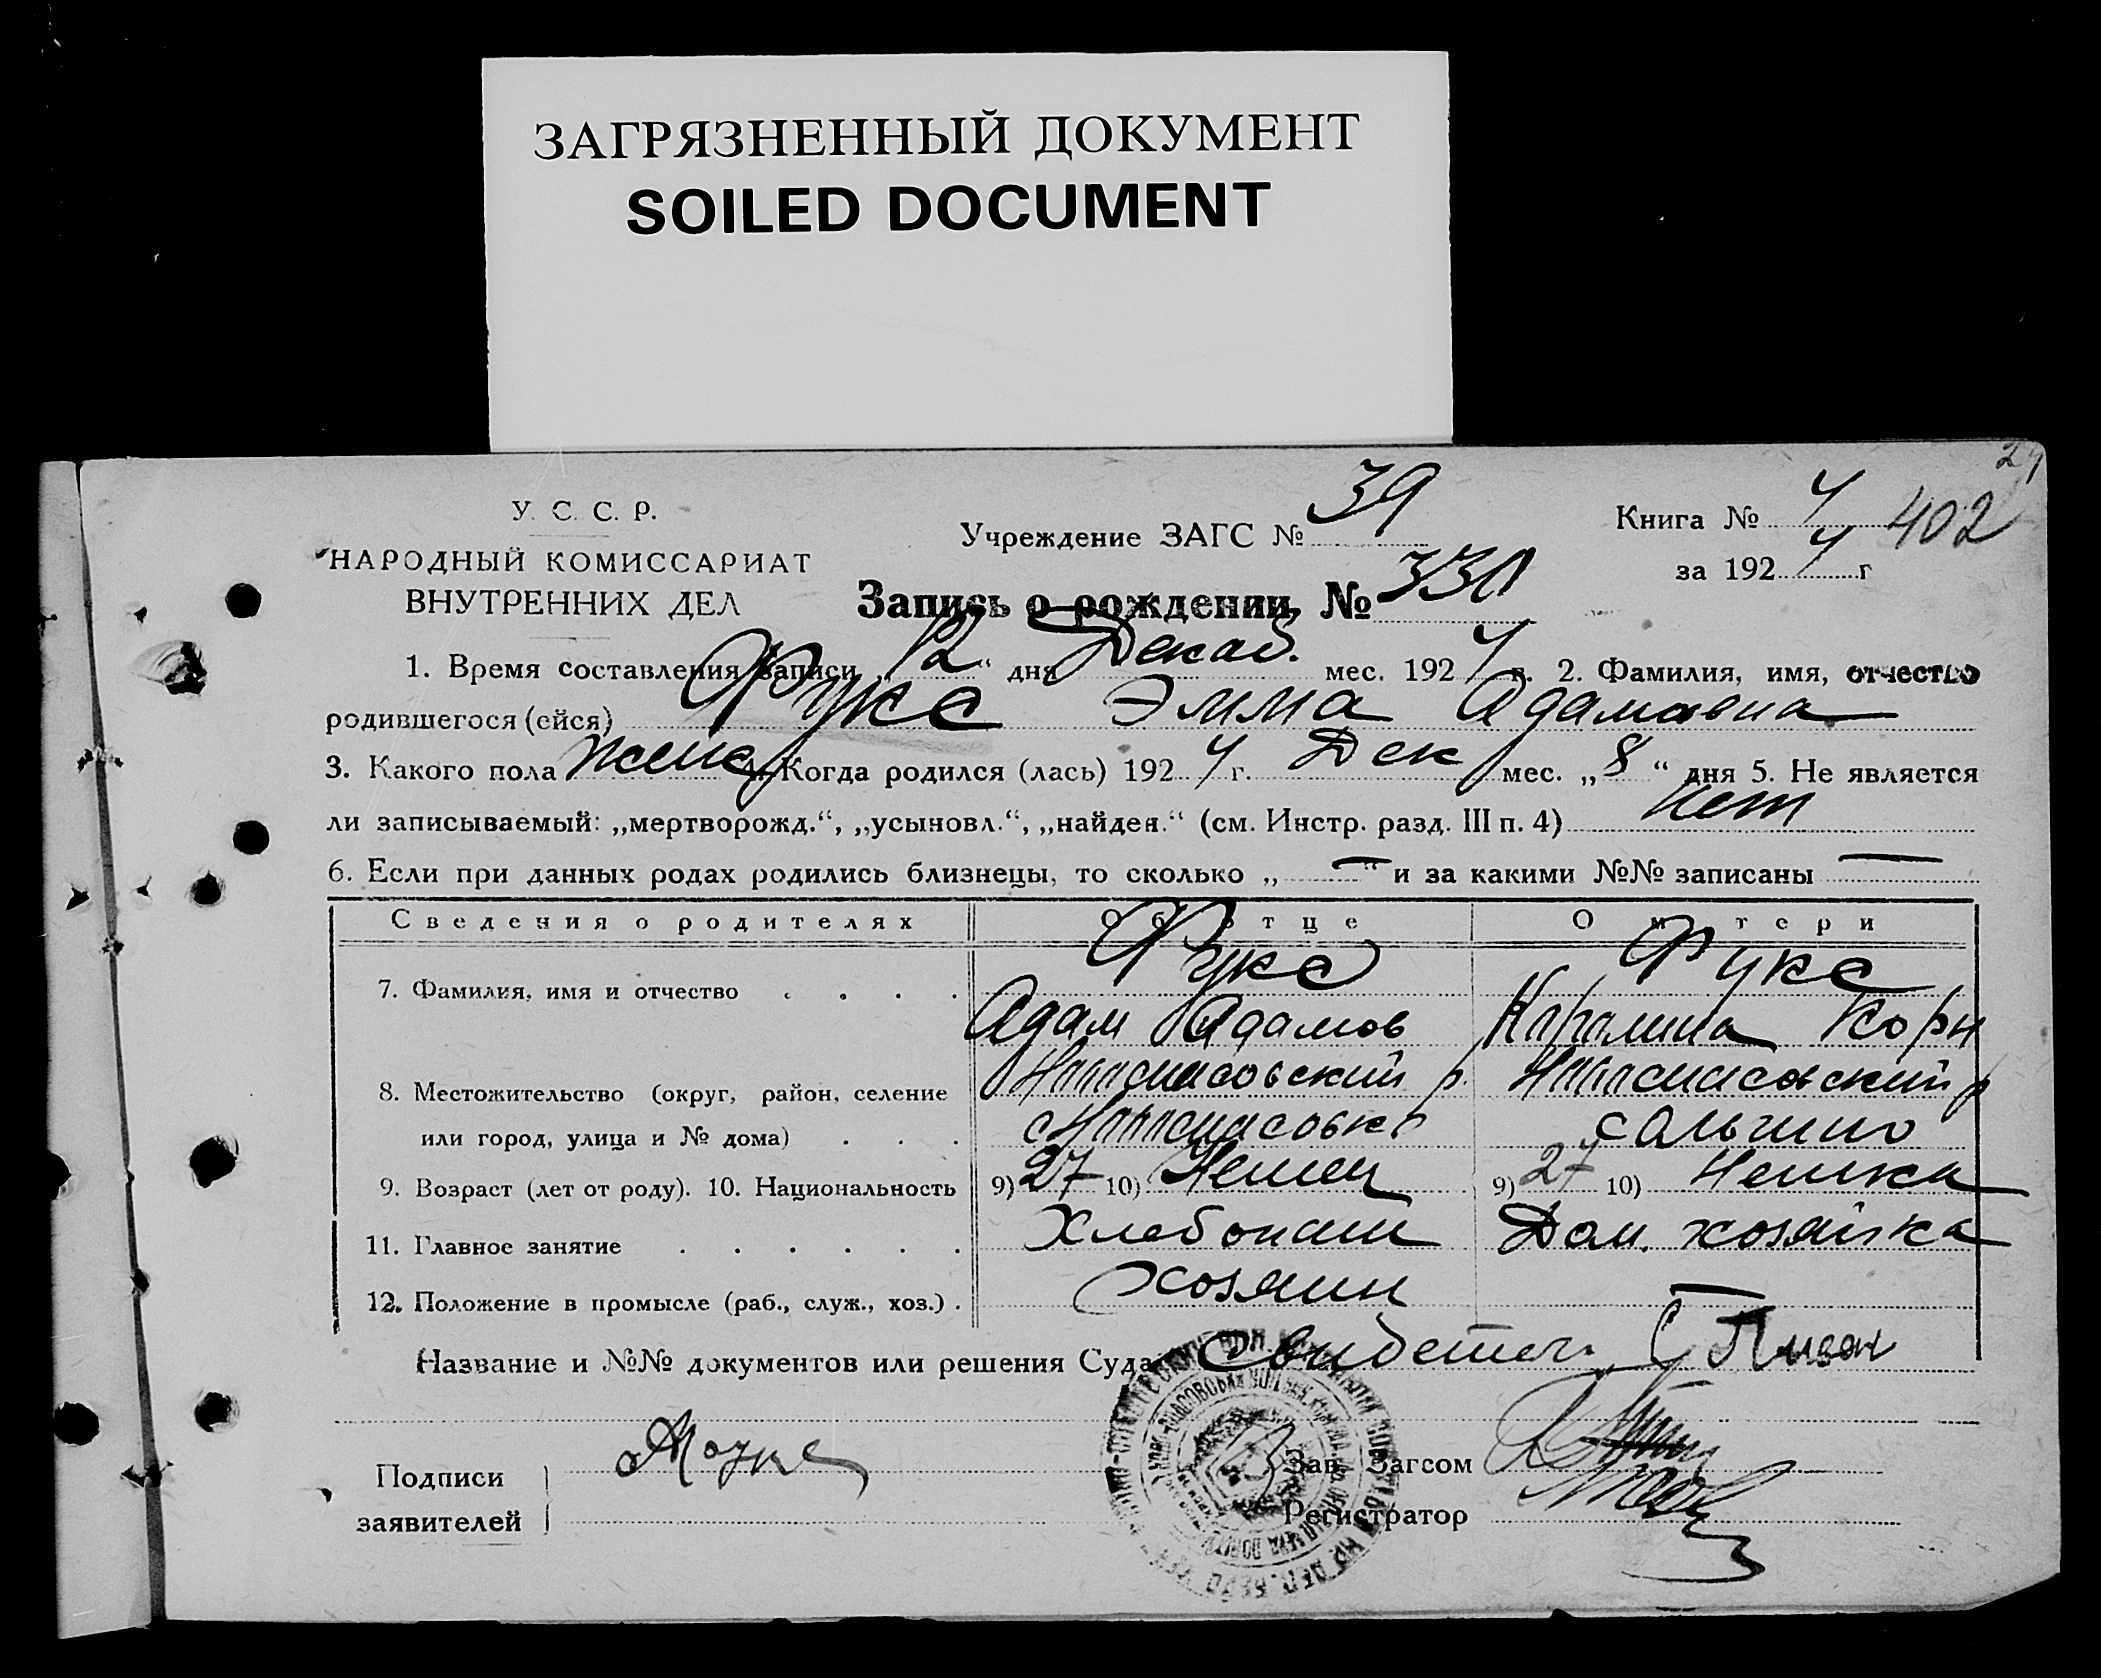 ЗАГРЯЗНЕННЫЙ ДОКУМЕНТ
SOILED DOCUMENT
У. С. С. Р.
НАРОДНЫЙ КОМИССАРИАТ
ВНУТРЕННИХ ДЕЛ
Учреждение ЗАГС № 39
Книга № 4 402
за 192 4 г
Запись о рождении №
1. Время составления записи „ 12 “ дня Декаб. мес. 192 4 г. 2. Фамилия, имя, отчество
родившегося (ейся) Фукс Эмма Адамовна
3. Какого пола женс 4. Когда родился (лась) 192 4 г. Дек мес. „ 8 “ дня 5. Не является
ли записываемый: „мертворожд.“, „усыновл.“, „найден.“ (см. Инстр. разд. III п. 4) нет
6. Если при данных родах родились близнецы, то сколько „ — “ и за какими №№ записаны —
Сведения о родителях Об отце О матери
7. Фамилия, имя и отчество . . . . Фукс Фукс
Адам Адамов Каролина Корн
8. Местожительство (округ, район, селение
или город, улица и № дома) . . .
9. Возраст (лет от роду). 10. Национальность 9) 27 10) Немец 9) 27 10) Немка
11. Главное занятие . . . . . . Хлебопаш Дом. хозяйка
12. Положение в промысле (раб., служ., хоз.) . хозяин —
Название и №№ документов или решения Суда Свидетел.
Подписи
заявителей
Зав. Загсом
Регистратор